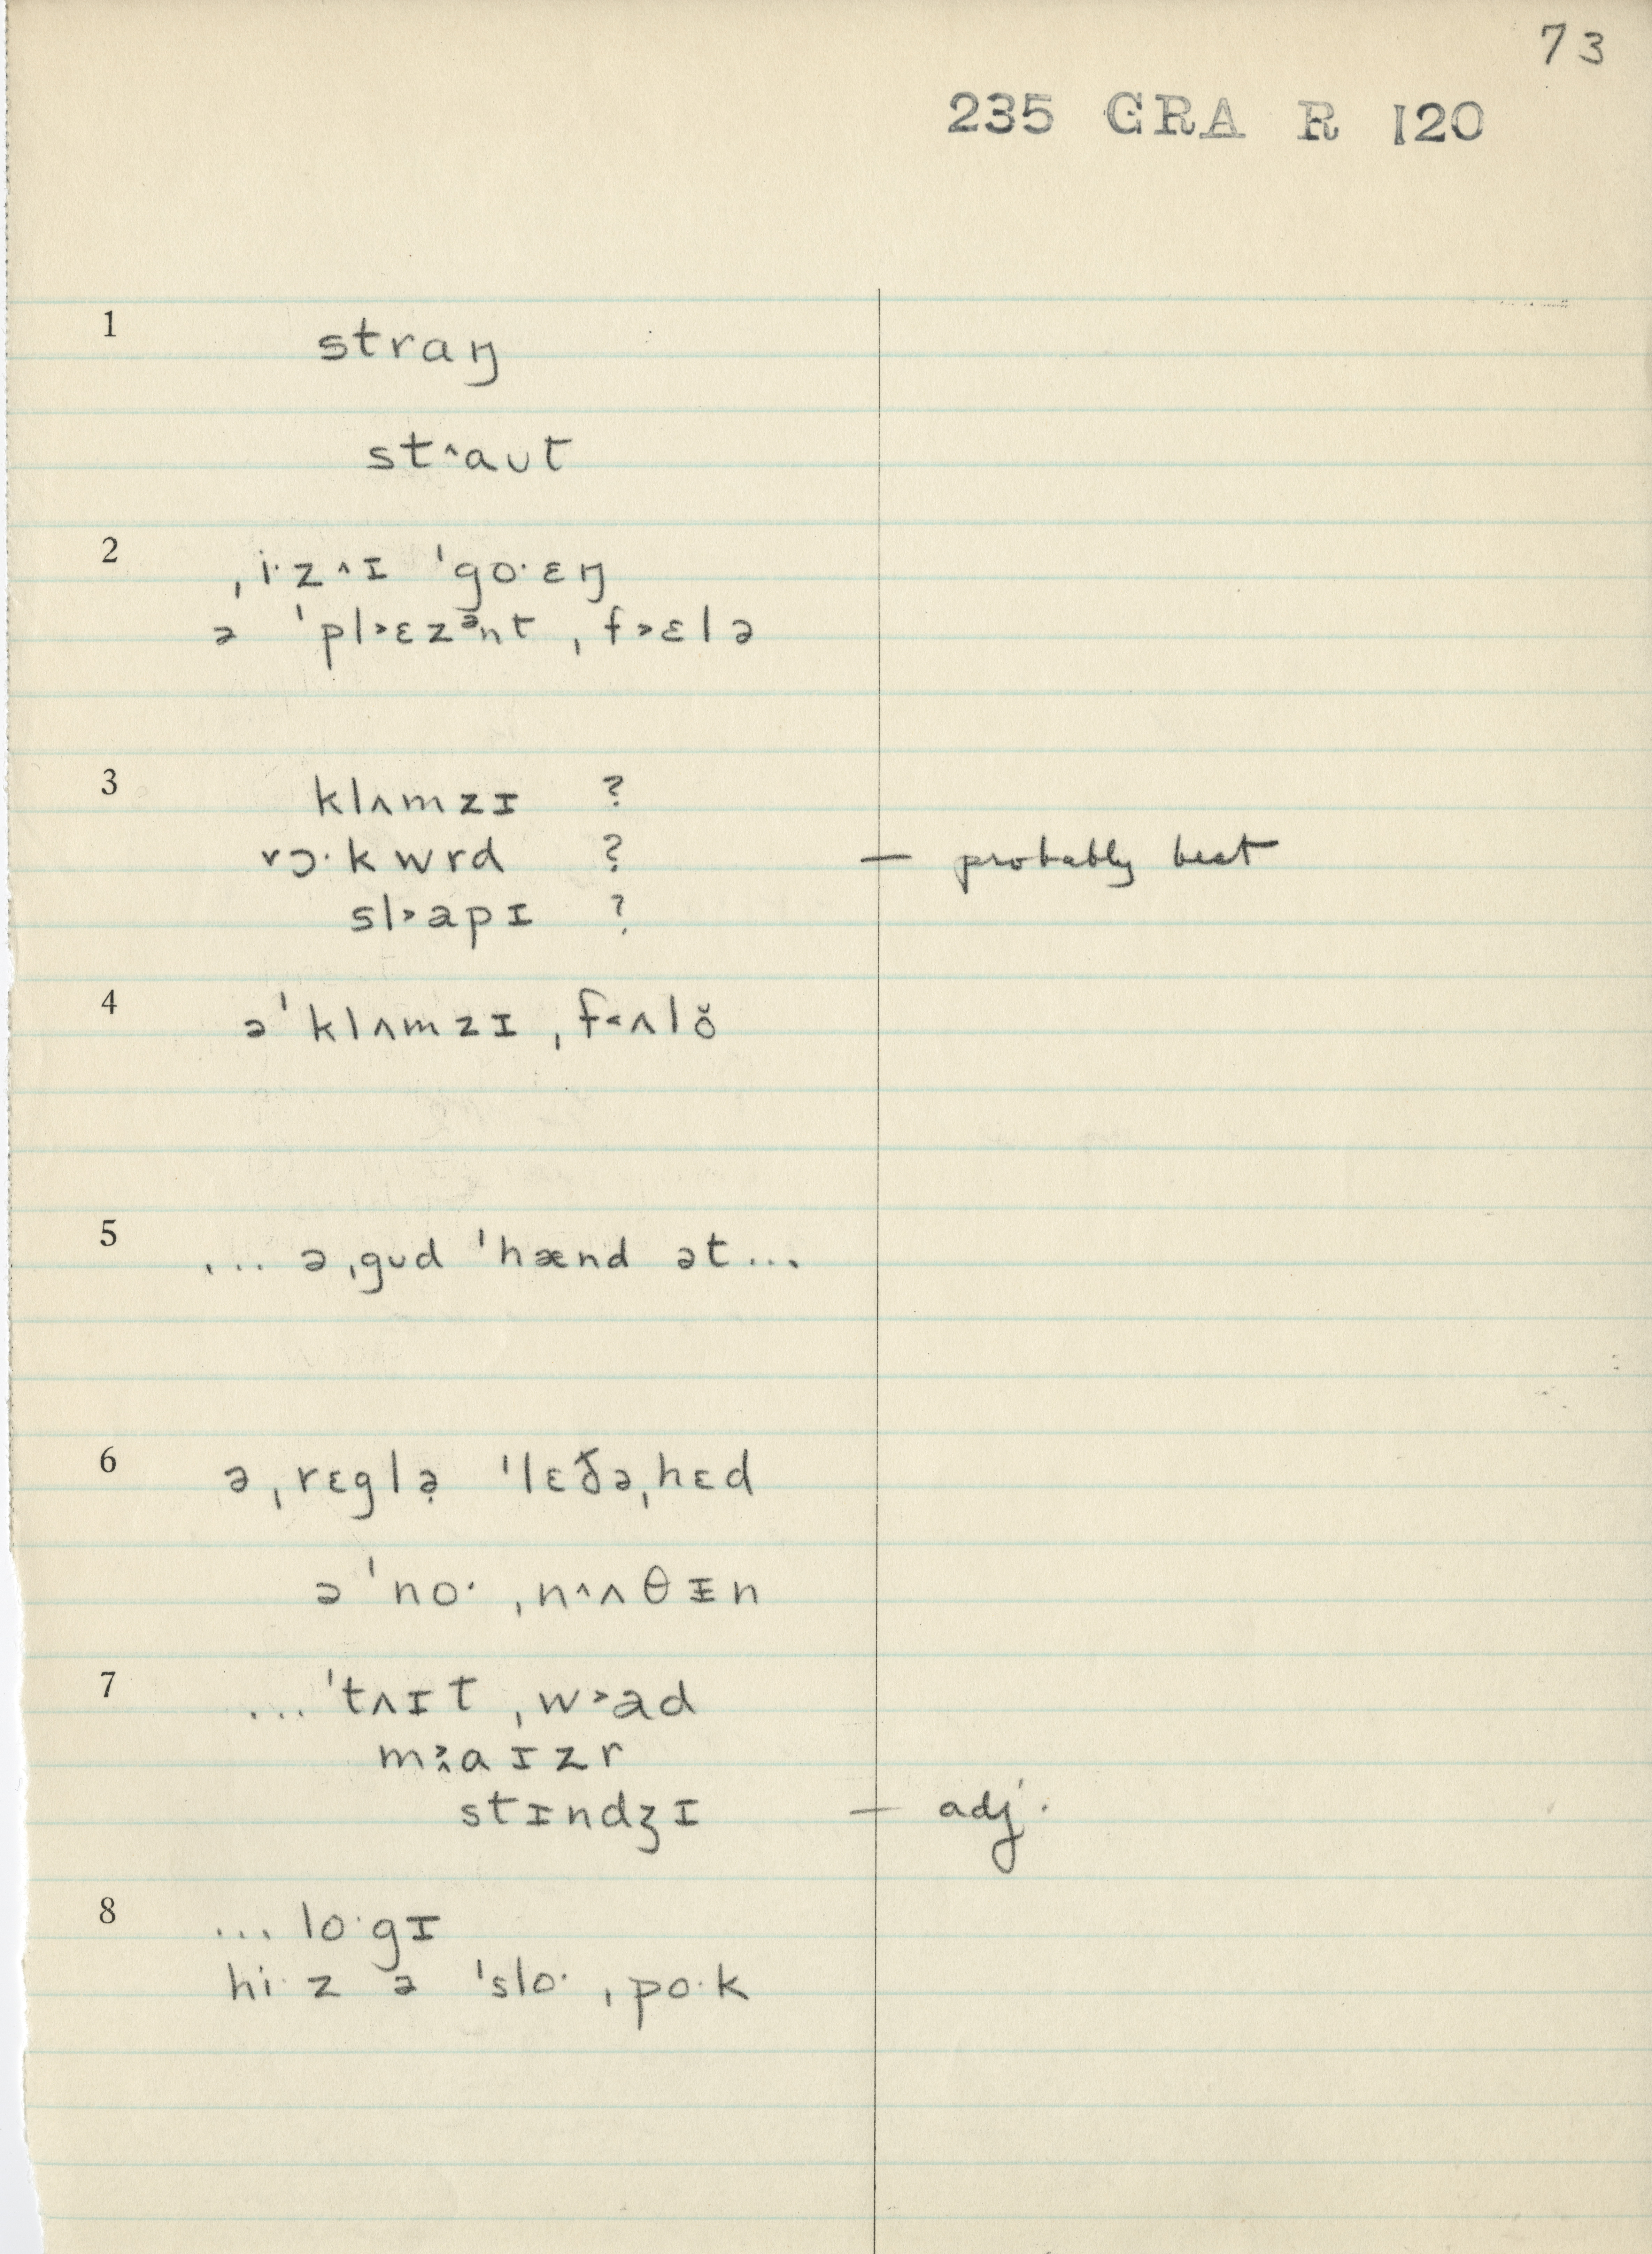 73
235 GRA R 120
1 straŋ
st˄aʊt
2 ˌi·z˄ɪ ˈgo·ɛŋ
ə ˈpl˃ɛzᵊnt ˌf˃ɛlə
3 klʌmzɪ ?
rɔ·kwrd ? — probably best
sl˃apɪ ?
4 əˈklʌmzɪ ˌf˂ʌlŏ
5 ... əˌgʊd ˈhænd ət...
6 əˌrɛglə̣ ˈlɛðəˌhɛd
əˈno· ˌn˄ʌθɪn
7 ... ˈtʌɪt ˌw˃ad
m˃˄aɪzr
stɪndʒɪ — adj.
8 ... lo·gɪ
hi·z ə ˈslo· ˌpo·k